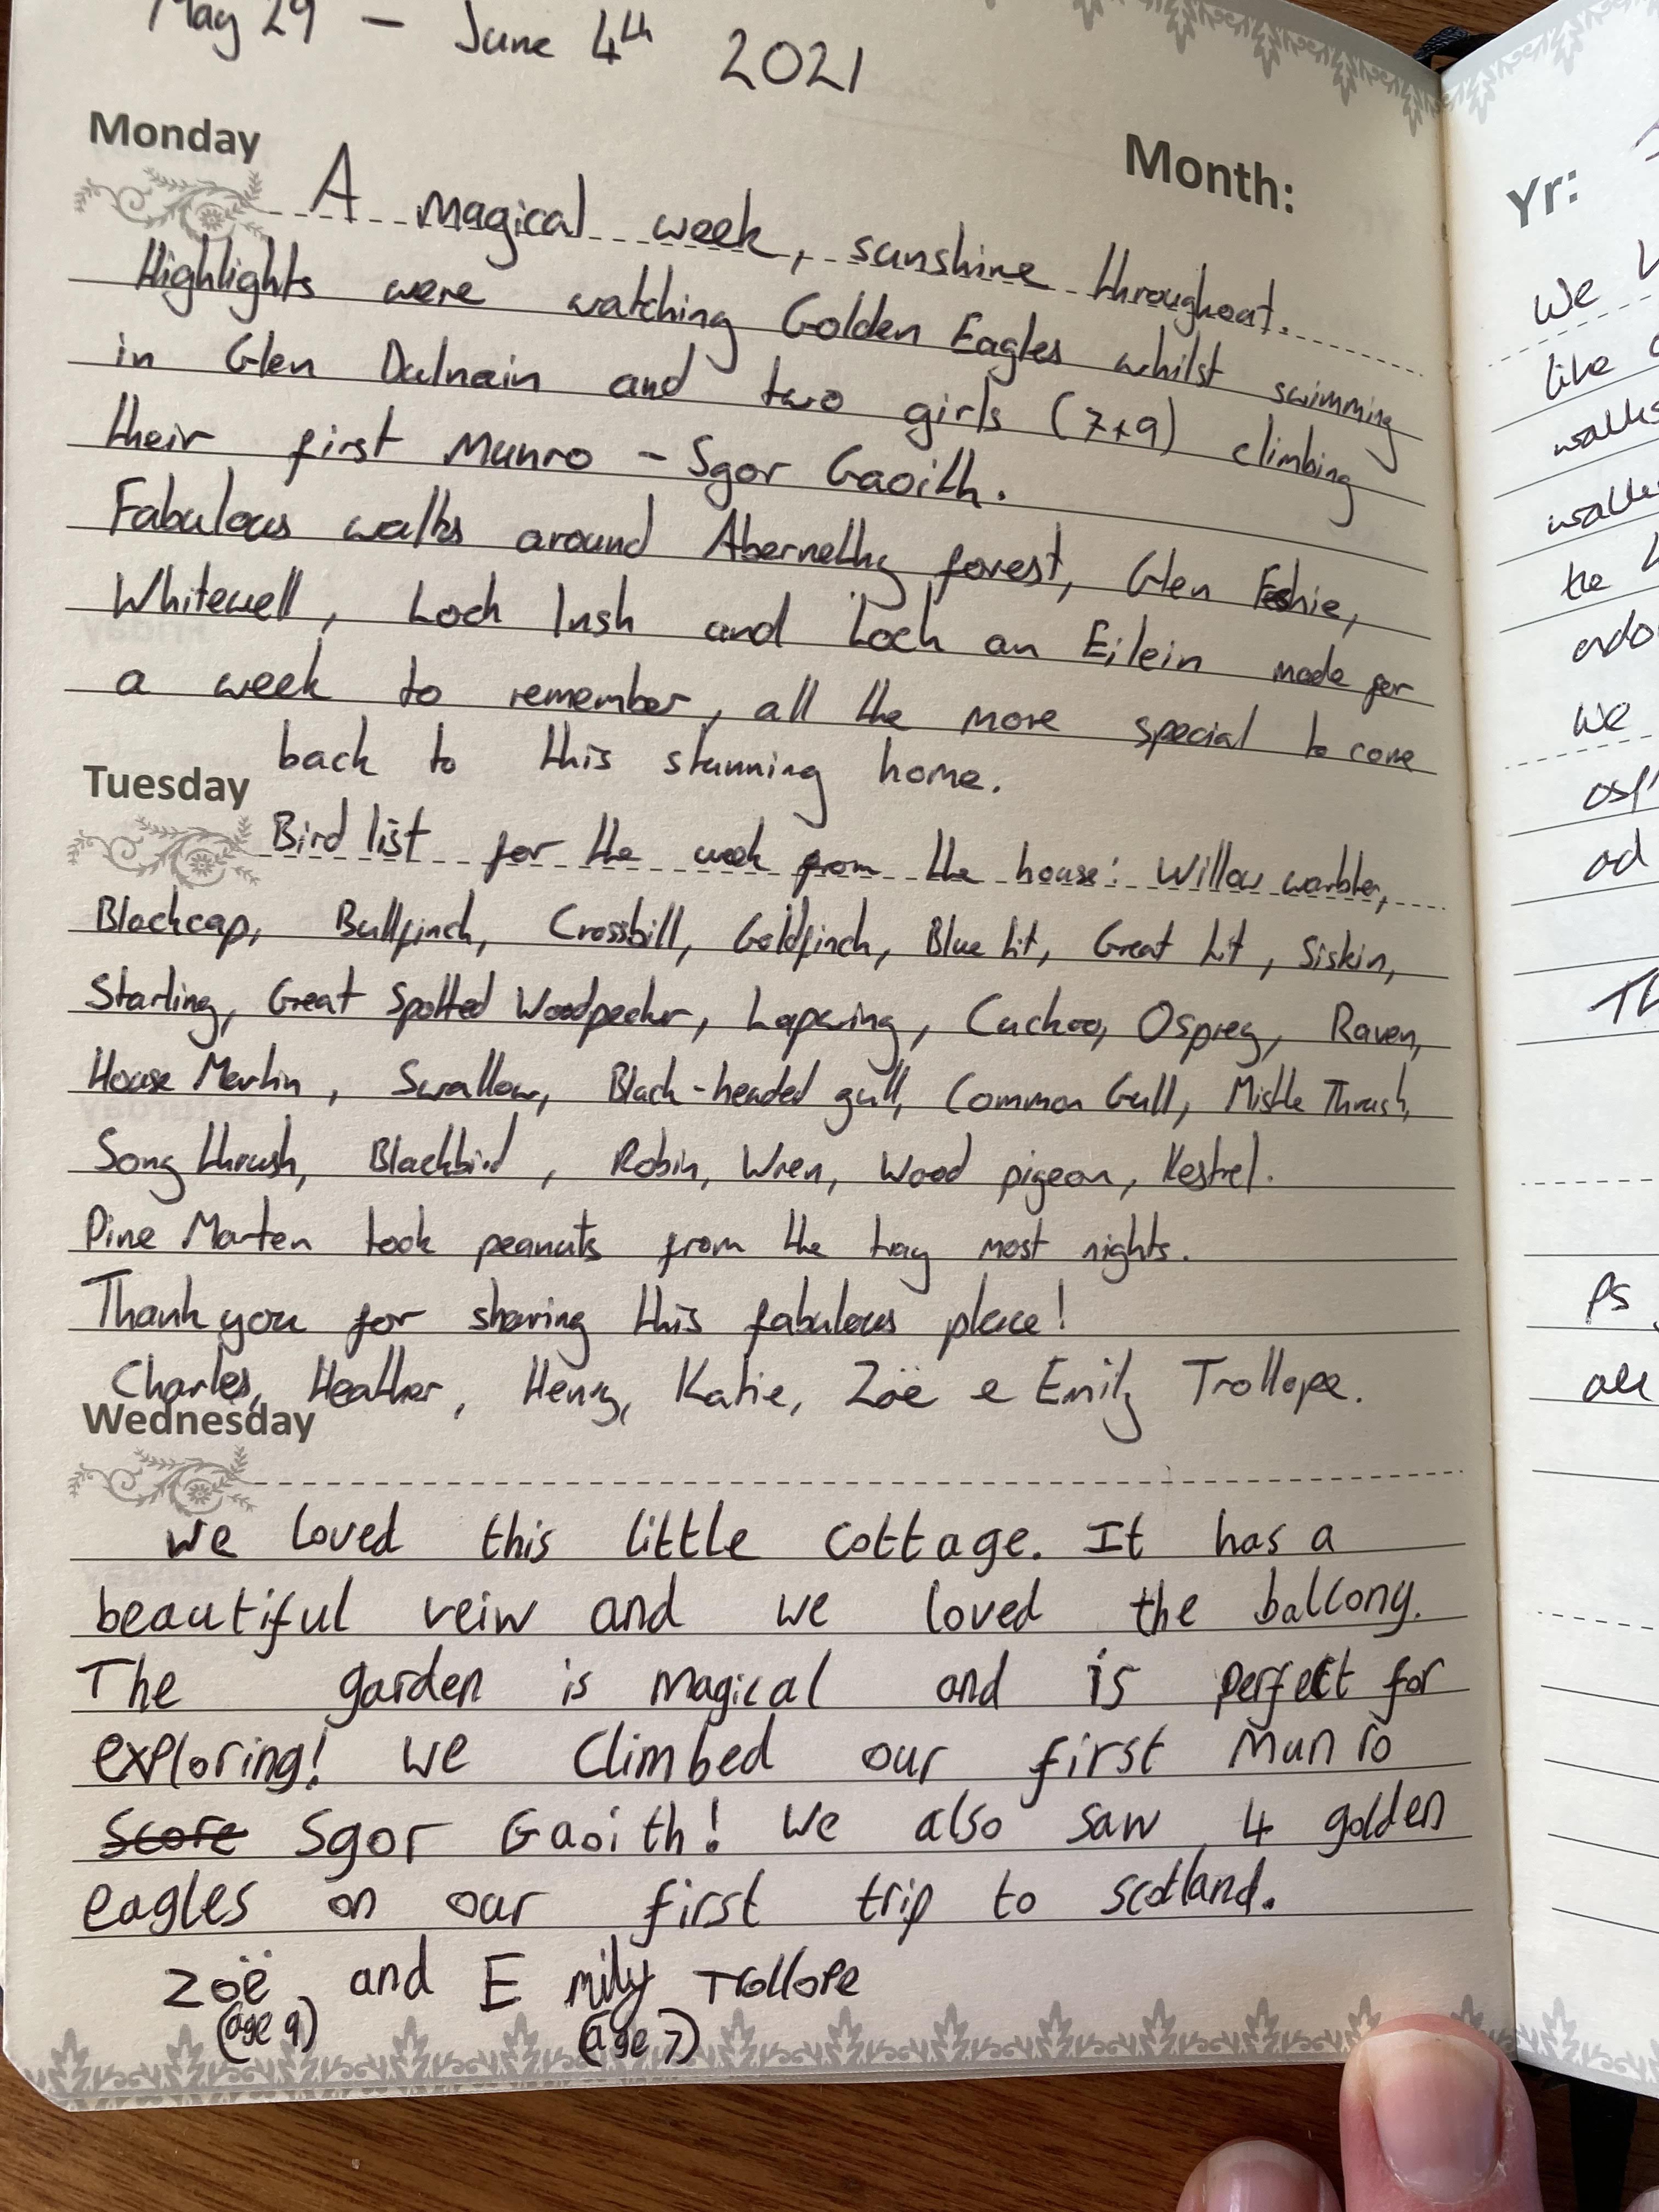 May 29 - June 4th 2021
Monday
Month:
A magical week, sunshine throughout.
Highlights were watching Golden Eagles whilst swimming
in Glen Dulnain and two girls (7+9) climbing
their first Munro - Sgor Gaoith.
Fabulous walks around Abernethy forest, Glen Feshie,
Whitewell, Loch Insh and Loch an Eilein made for
a week to remember, all the more special to come
back to this stunning home.
Tuesday
Bird list for the week from the house: Willow warbler,
Blackcap, Bullfinch, Crossbill, Goldfinch, Blue tit, Great tit, Siskin,
Starling, Great Spotted Woodpecker, Lapwing, Cuckoo, Osprey, Raven,
House Martin, Swallow, Black-headed gull, Common Gull, Mistle Thrush,
Song thrush, Blackbird, Robin, Wren, Wood pigeon, Kestrel.
Pine Marten took peanuts from the tray most nights.
Thank you for sharing this fabulous place!
Charles, Heather, Henry, Katie, Zoë & Emily Trollope.
Wednesday
we loved this little cottage. It has a
beautiful veiw and we loved the balcony.
The garden is magical and is perfect for
exploring! we climbed our first Munro
Score Sgor Gaoith! We also saw 4 golden
eagles on our first trip to scotland.
Zoë and Emily Trollope
(age 9) (age 7)
Yr:
We
like
walks
the
we
ad
Ps